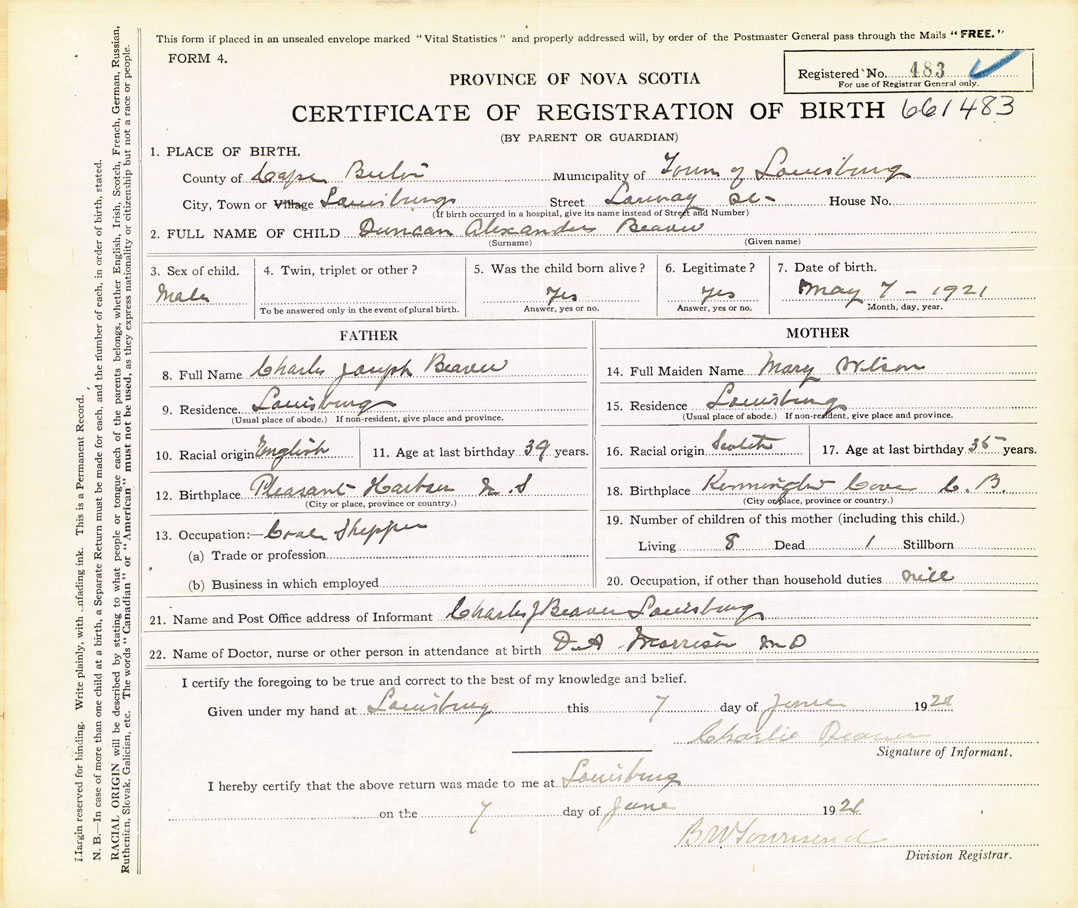 This form if placed in an unsealed envelope marked "Vital Statistics" and properly addressed will, by order of the Postmaster General pass through the Mails "FREE."
FORM 4.
Registered No. 483
For use of Registrar General only.
PROVINCE OF NOVA SCOTIA
CERTIFICATE OF REGISTRATION OF BIRTH 661483
(BY PARENT OR GUARDIAN)
1. PLACE OF BIRTH.
County of Cape Breton Municipality of Town of Louisburg
City, Town or Village Louisburg Street St- House No.
(If birth occurred in a hospital, give its name instead of Street and Number)
2. FULL NAME OF CHILD Duncan Alexander Beaver
(Surname) (Given name)
3. Sex of child. 4. Twin, triplet or other? 5. Was the child born alive? 6. Legitimate? 7. Date of birth.
Male Yes Yes May 7 - 1921
To be answered only in the event of plural birth. Answer, yes or no. Answer, yes or no. Month, day, year.
FATHER
8. Full Name Charles Joseph Beaver
9. Residence. Louisburg
(Usual place of abode.) If non-resident, give place and province.
10. Racial origin English 11. Age at last birthday 39 years.
12. Birthplace Pleasant Harbour N.S
(City or place, province or country.)
13. Occupation:— Coal Shipper
(a) Trade or profession
(b) Business in which employed
MOTHER
14. Full Maiden Name Mary Wilson
15. Residence Louisburg
(Usual place of abode.) If non-resident, give place and province.
16. Racial origin Scotch 17. Age at last birthday 35 years.
18. Birthplace Kennington Cove C. B.
(City or place, province or country.)
19. Number of children of this mother (including this child.)
Living 8 Dead 1 Stillborn
20. Occupation, if other than household duties nill
21. Name and Post Office address of Informant Charles J Beaver Louisburg
22. Name of Doctor, nurse or other person in attendance at birth D.A Morrison MD
I certify the foregoing to be true and correct to the best of my knowledge and belief.
Given under my hand at Louisburg this 7 day of June 1921
Charlie Beaver
Signature of Informant.
I hereby certify that the above return was made to me at Louisburg
on the 7 day of June 1921
B W Townsend
Division Registrar.
Margin reserved for binding. Write plainly, with unfading ink. This is a Permanent Record.
N. B.—In case of more than one child at a birth, a Separate Return must be made for each, and the number of each, in order of birth, stated.
RACIAL ORIGIN will be described by stating to what people or tongue each of the parents belongs, whether English, Irish, Scotch, French, German, Russian,
Ruthenian, Slovak, Galician, etc. The words "Canadian" or "American" must not be used, as they express nationality or citizenship but not a race or people.